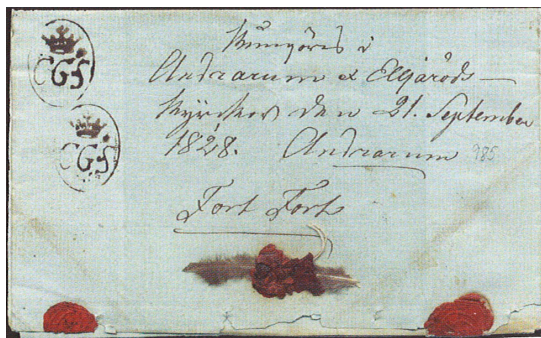 CGS
CGS
Kungöres i
Andrarum & Elljaröds
Kyrckor den 21. September
1828. Andrarum 985
Fort Fort